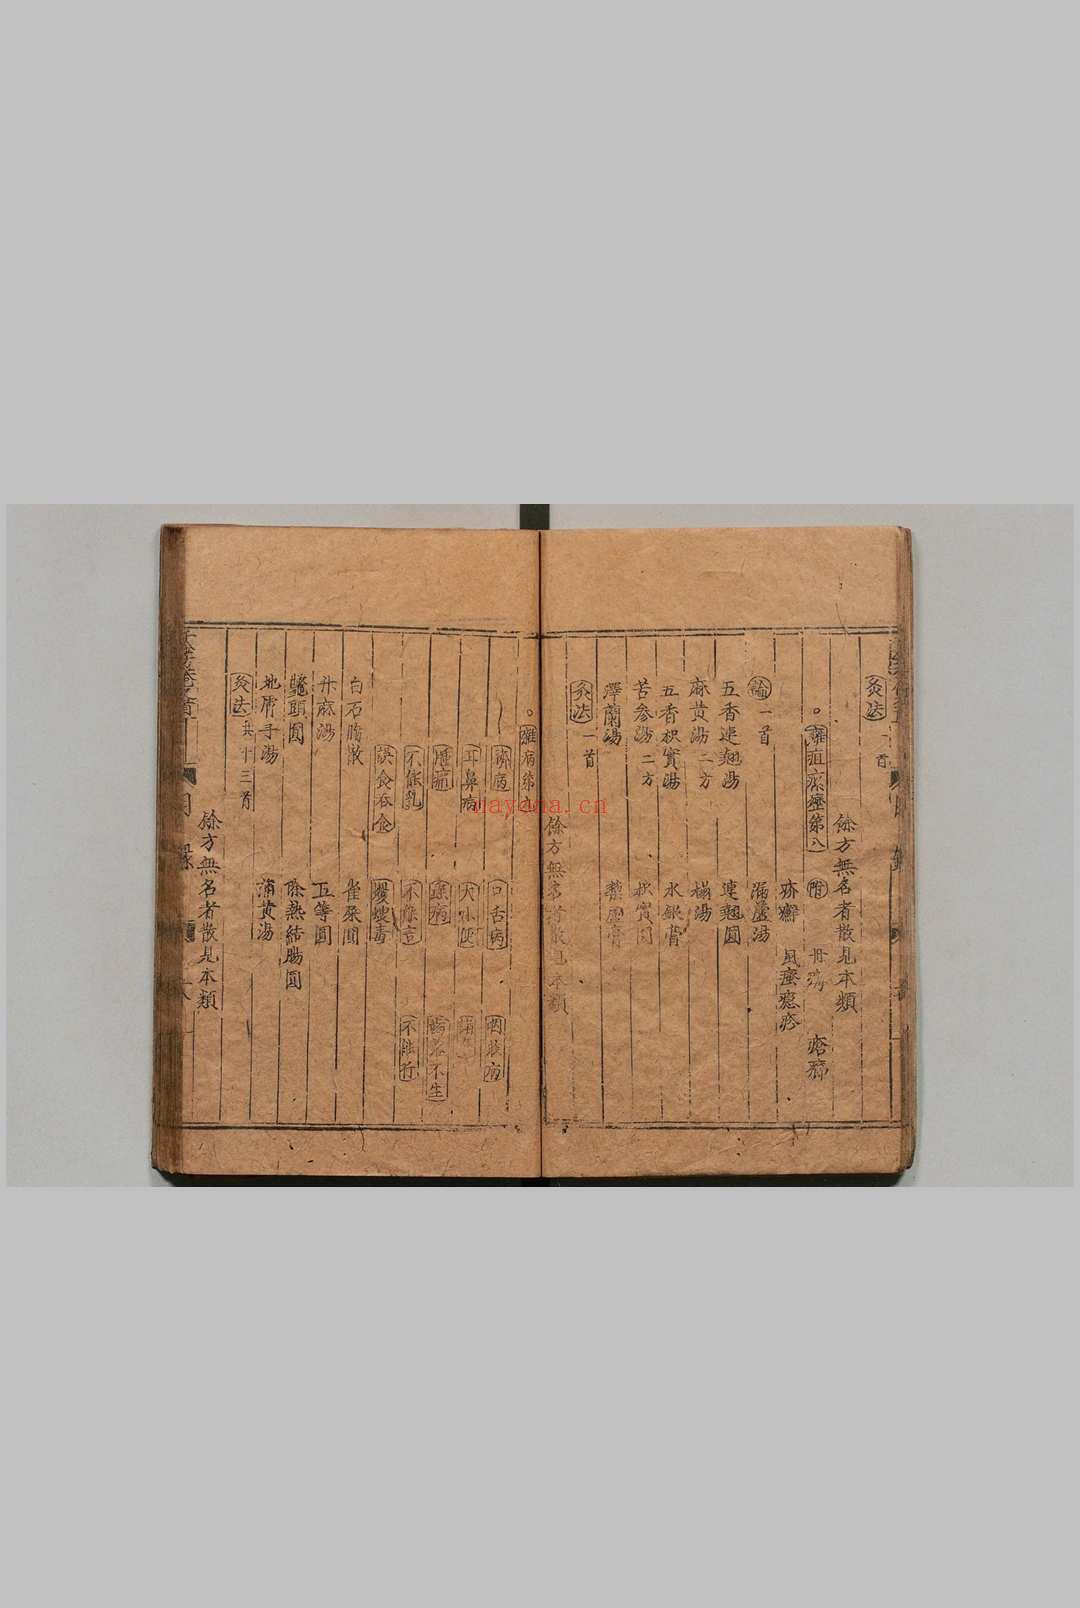 灸法 一首
餘方無名者散見本類
癰疽瘰癧第八 附 丹𤺊 瘡癤
疥癬 風瘙癮疹
論 一首
漏蘆湯
五香連翹湯 連翹圓
麻黄湯 二方 榻湯
五香枳實湯 水銀膏
苦参湯 二方 枳實圓
澤蘭湯 藜蘆膏
灸法 一首
餘方無名者散見本類
雜病第九
臍瘡 口舌病 咽喉病
耳鼻病 大小便
不能乳 不能言 不能行
誤食吞
白石脂散 雀屎圓
升麻湯 五等圓
鼈頭圓 除熱結腸圓
地膚子湯 蒲黄湯
灸法 共十三首
餘方無名者散見本類
目錄
nayona.cn